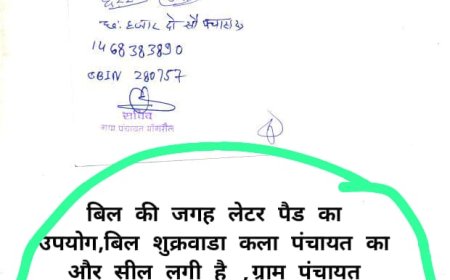 छः हजार दो सौ पचास रु
1468383890
CBIN 280757
सचिव
ग्राम पंचायत
बिल की जगह लेटर पैड का
उपयोग,बिल शुक्रवाडा कला पंचायत का
और सील लगी है ,ग्राम पंचायत